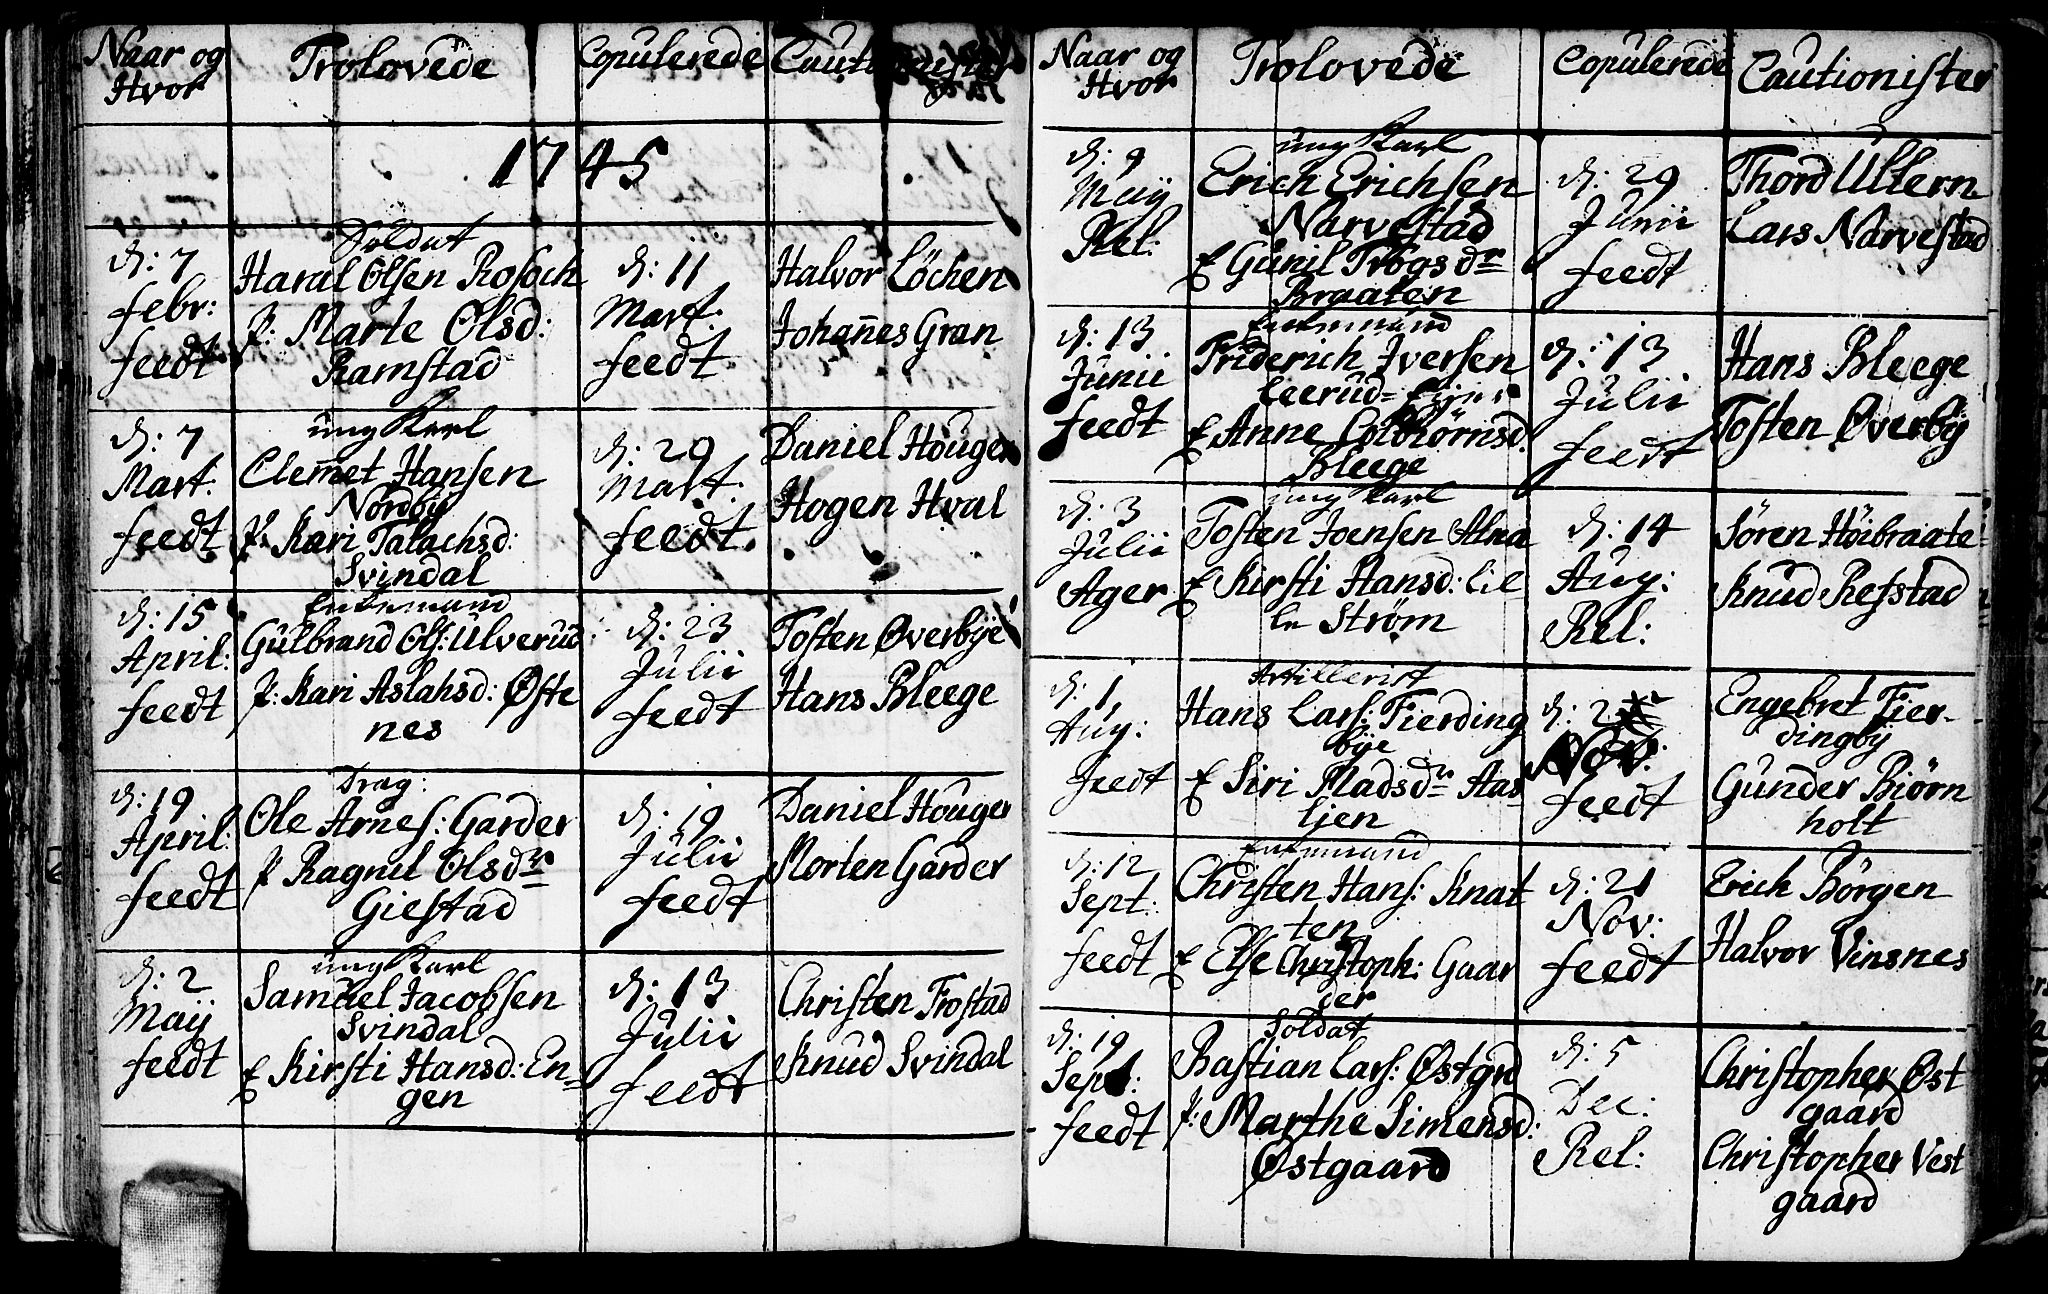 Naar og
Hvor
Trolovede
Copulerede
1745
d: 7
Febr:
feedt
Soldat
Haral Olsen Rosoch
P: Marte Olsd:
Ramstad
d: 11
Mart:
feedt
Halvor Löchen
Johan̄es Gran
d: 7
Mart:
feedt
ung Karl
Clem̄et Hansen
Nordby
P: Kari Talachsd:
Svindal
d: 29
Mart:
feedt
Daniel Houger
Hogen Hval
d: 15
April:
feedt
Enkemand
Gulbrand Ols: Ulverud
P: Kari Aslahsd: Øste
nes
d: 23
Julii
feedt
Tosten Øverbye
Hans Bleege
d: 19
April:
feedt
Drag:
Ole Arnes: Garder
P Ragnil Olsdr
Giestad
d: 19
Julii
feedt
Daniel Houger
Morten Garder
d: 2
Maÿ
feedt
ung Karl
Samuel Jacobsen
Svindal
E Kirsti Hansd: En=
gen
d: 13
Julii
feedt
Christen Frostad
Knud Svindal
Naar og
Hvor
Trolovede
Copulerede
Cautionister
d: 9
Maÿ
Rel:
ung Karl
Erich Erichsen
Narvestad
E Gunil Trogsdr
Braaten
d: 29
Junii
feedt
Thord Ullern
Lars Narvestad
d: 13
Junii
feedt
Enkemand
Friderich Iversen
Leerud=
E Anne Colbiörnsd:
Bleege
d: 13
Julii
feedt
Hans Bleege
Tosten Øverbÿ
d: 3
Julii
Ager
ung Karl
Tosten Joensen Alna
E Kirsti Hansd: Lil
le Strøm
d: 14
Aug:
Rel:
Sören Höibraate
Knud Refstad
d: 1,
Aug:
feedt
Artillerist
Hans Lars: Fierding
bye
E Siri Madsdr Aas
ljen
d: 2
Nov:
feedt
Engebret Fier-
dingbÿ
Gunder Biörn
holt
d: 12
Sept:
feedt
Enkemand
Christen Hans: Knat
ten
E Else Christoph: Gaar
der
d: 21
Nov:
feedt
Erich Börgen
Halvor Vinsnes
d: 19
Sept:
feedt
Soldat
Bastian Lars: Østgrd
P: Marthe Simensd:
Østgaard
d: 5
Dec:
Rel:
Christopher Øst
gaard
Christopher Vest
gaard